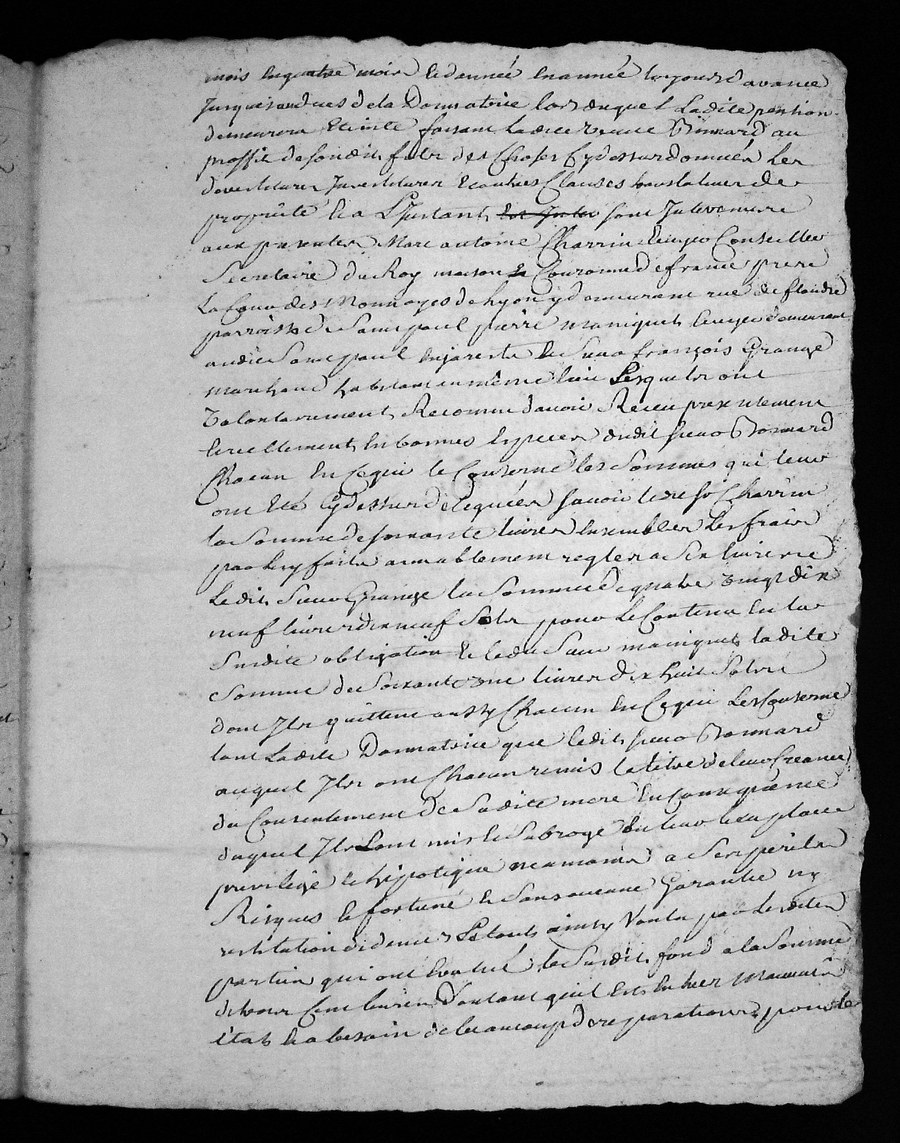 mois en quatre mois et dannée en année toujours d'avance
jusques au deces de la Donnatrice lors duquel Ladite pention
demeurera Eteinte faisant ladite veuve Bonnard au
proffit de sondit fils des Choses Cydessus données Les
devestitures Investitures Et autres Clauses translatives de
propriété Et a L'Instant sont Intervenus
aux presentes Marc antoine Charrin Ecuyer Conseiller
Secretaire du Roy maison Couronne de france pres
La Cour des Monnoyes de Lyon y demeurant rue de flandre
parroisse de Saint paul pierre maniquet Ecuyer demeurant
audit Saint paul en jarest Et Sieur françois Grange
marchand habitant au même lieu Lesquels ont
volontairement Reconnu d'avoir Receu presentement
Et reellement En bonnes Especes dudit sieur Bonnard
Chacun En Ce qui le Concerne les Sommes qui leur
ont Eté Cydessus deleguées savoir ledit Sr Charrin
la Somme de soixante livres Ensembles Les frais
par luy faits amiablement regles a Six livres
Ledit Sieur Grange la Somme de quatre vingt dix
neuf livres dix neuf Sols pour Le Contenu En la
Susdite obligation Et ledit Sieur maniquet ladite
Somme de Soixante une livres dix huit Sols
dont Ils quittent aussy Chacun En Ce qui Les Concerne
tant Ladite Donnatrice que ledit sieur Bonnard
auquel Ils ont Chacun remis le titre de leur Creance
du Consentement de Sadite mere En Consequence
duquel Ils Lont mis Et Subrogé En leur lieu place
privilege Et hipotéque neanmoins a Ses perils
Risques Et fortune Et Sans aucune Garantie ny
restitution de deniers Le tout ainsy voulu par lesdites
parties qui ont Evalué le Susdit fond a la Somme
de Cent livres D'autant qu'il Est En tres Mauvais
état Et a besoin de beaucoup de reparations pour le